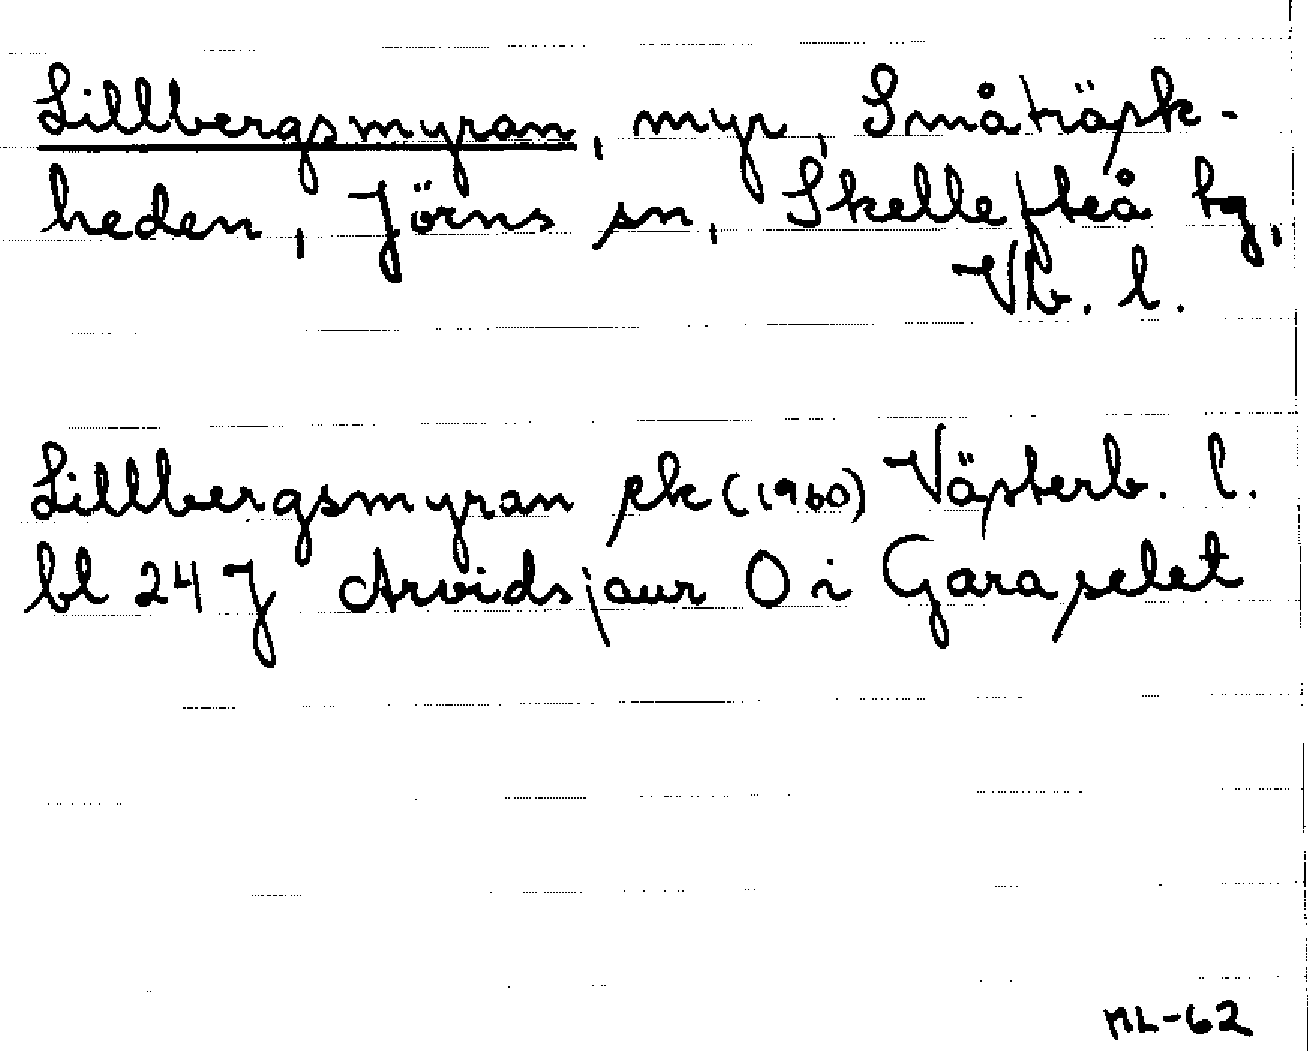 Lillbergsmyran, myr, Småträsk-
heden, Jörns sn, Skellefteå tg,
Vb. l.
Lillbergsmyran ek (1960) Västerb. l.
bl 24 J Arvidsjaur O i Garaselet
ML-62